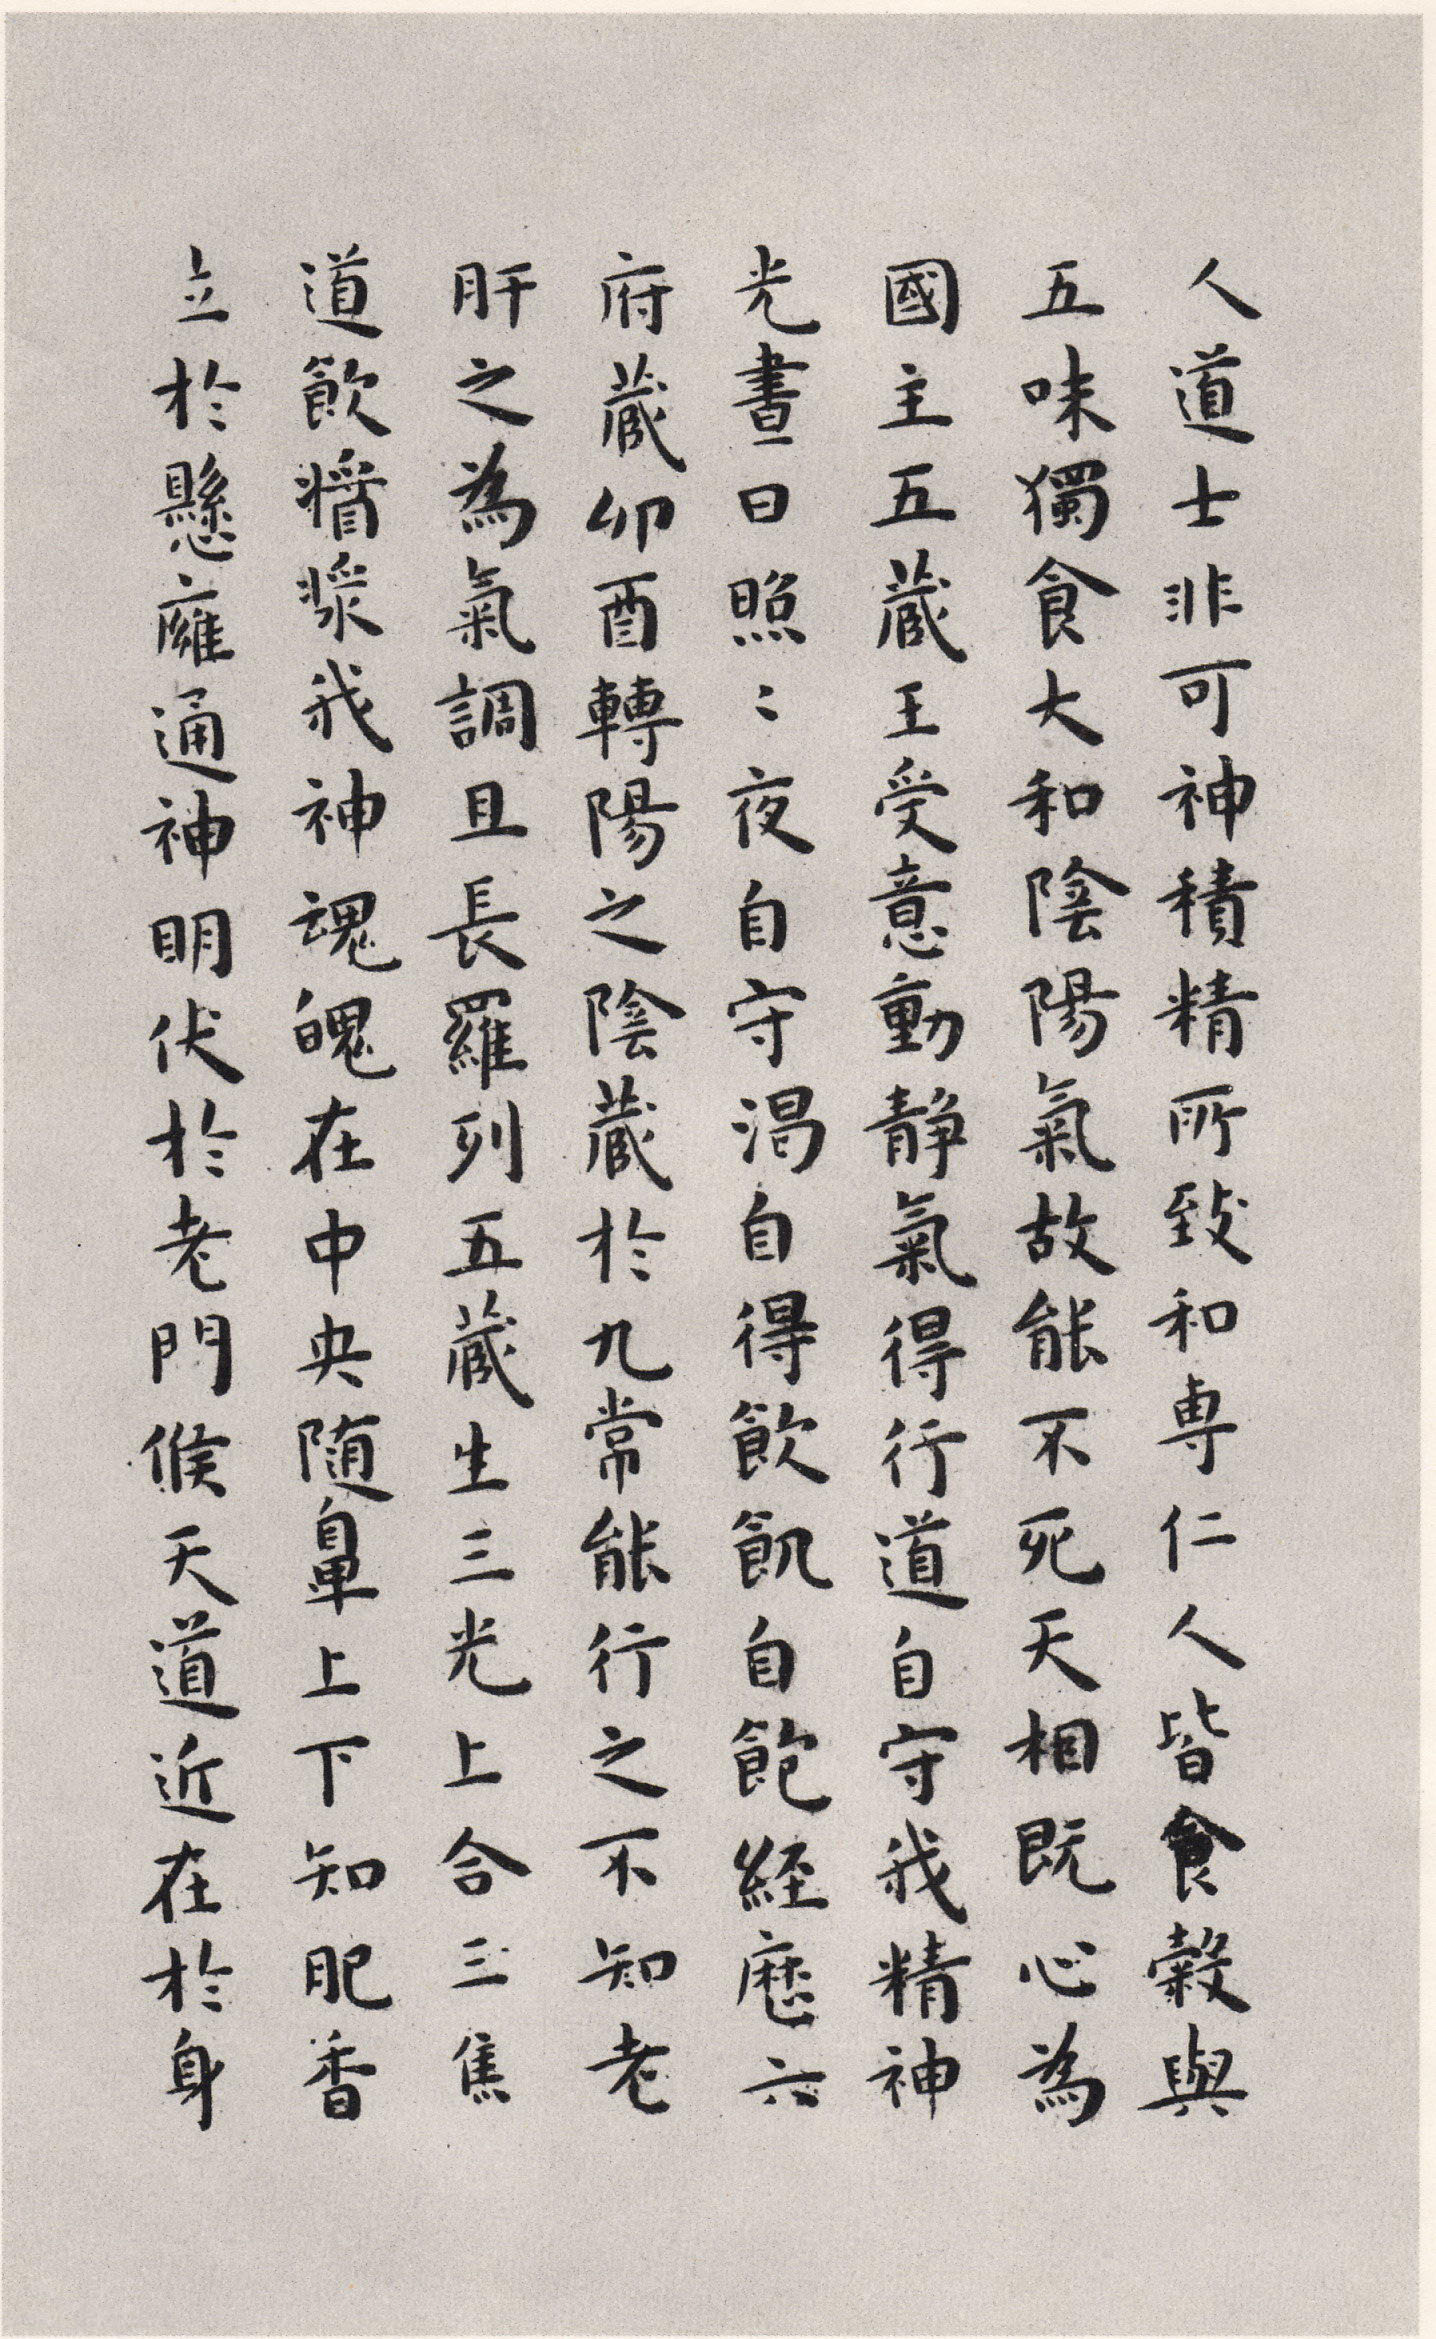 人道士非可神積精所致和専仁人皆食穀與
五味獨食大和陰陽氣故能不死天相既心為
國主五蔵王受意動静氣得行道自守我精神
光晝日照〻夜自守渇自得飲飢自飽經歴六
府蔵卯酉轉陽之陰蔵於九常能行之不知老
肝之為氣調且長羅列五蔵生三光上合三焦
道飲漿我神魂魄在中央随鼻上下知肥香
立於懸廱通神明伏於老門候天道近在於身